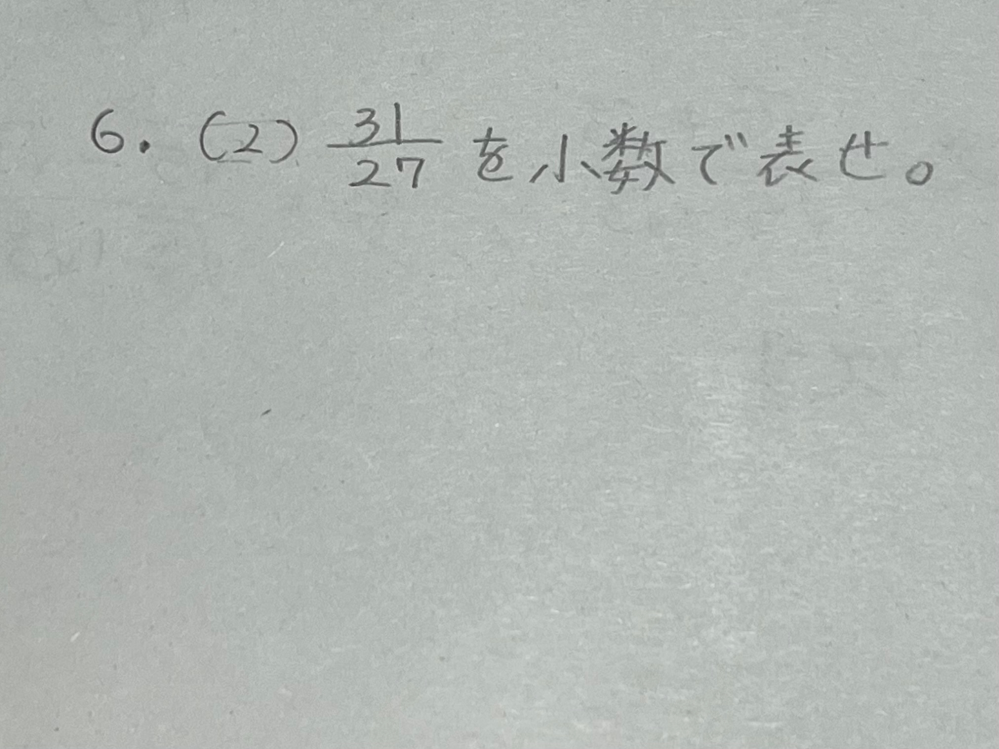 6. (2) 31/27 を小数で表せ。